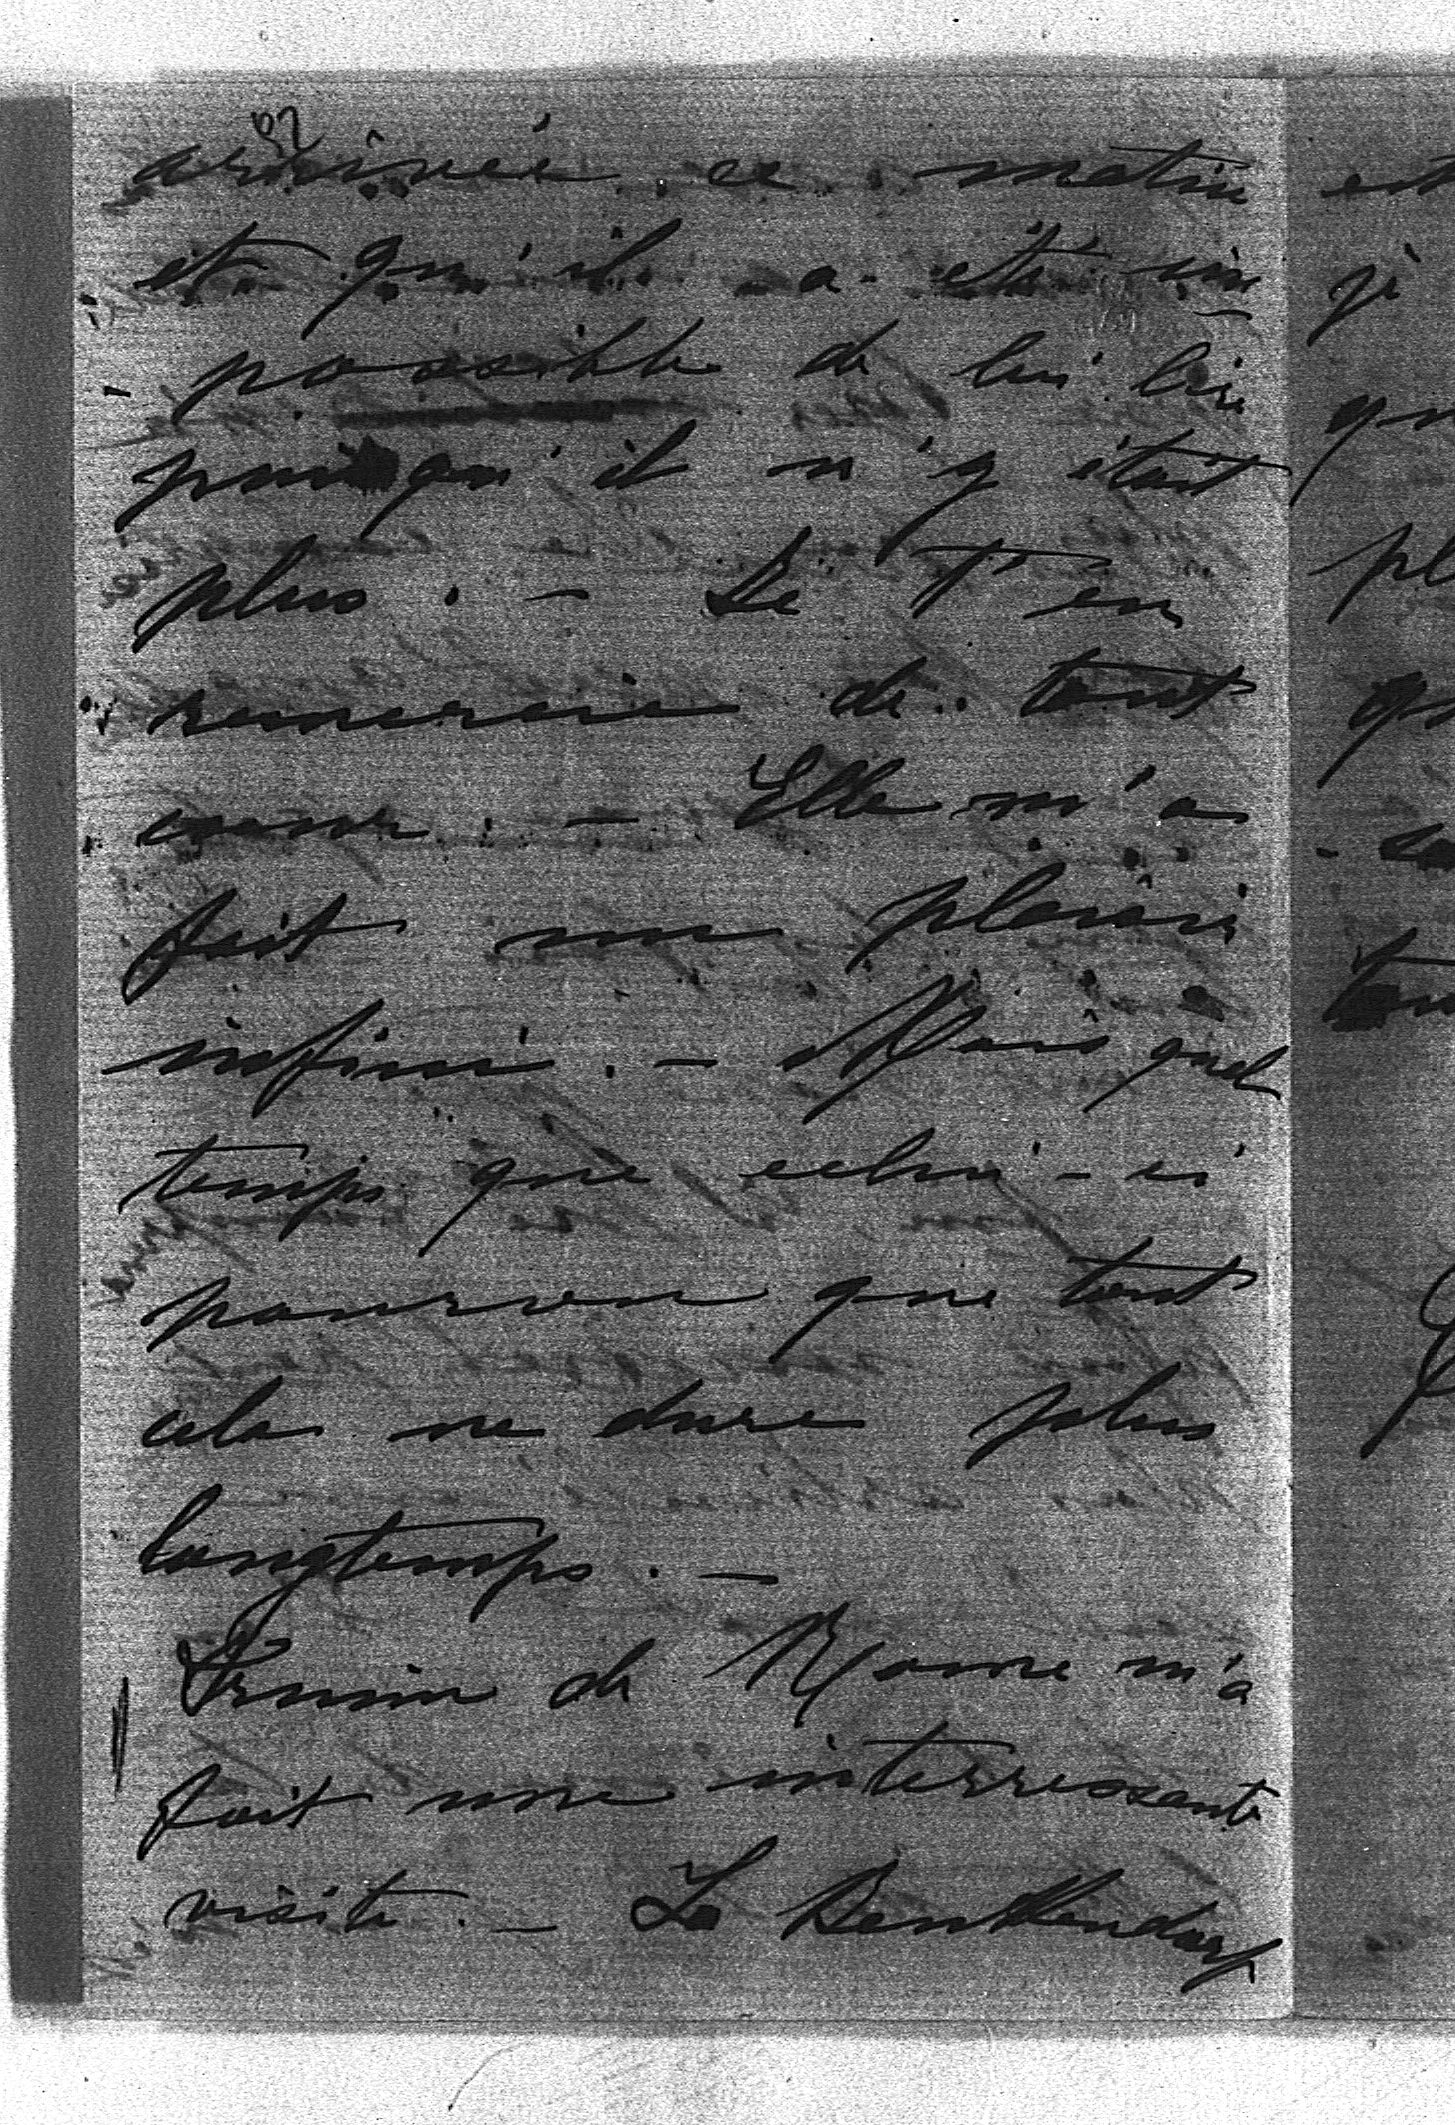 arrivée ce matin
et qu'il a été im
possible de lui lire
puisqu'il n'y était
plus. — Je T'en
remercie de tout
coeur. — Elle m'a
fait un plaisir
infini. — Mais quel
temps que celui-ci
pourvu que tout
cela ne dure plus
longtemps. —
de Rome m'a
fait une interressante
visite. — Le Benkendorf